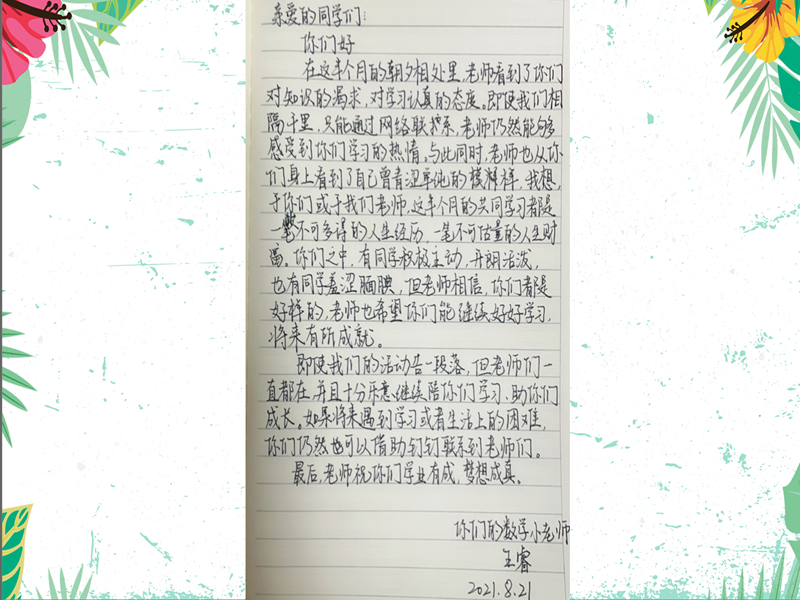 亲爱的同学们:
你们好
在这半个月的朝夕相处里,老师看到了你们
对知识的渴求,对学习认真的态度。即使我们相
隔千里,只能通过网络联系,老师仍然能够
感受到你们学习的热情。与此同时,老师也从你
们身上看到了自己曾青涩单纯的模样。我想,
于你们或于我们老师,这半个月的共同学习都是
一笔不可多得的人生经历,一笔不可估量的人生财
富。你们之中,有同学积极主动,开朗活泼,
也有同学羞涩腼腆,但老师相信,你们都是
好样的,老师也希望你们能继续好好学习,
将来有所成就。
即使我们的活动告一段落,但老师们一
直都在,并且十分乐意继续陪你们学习、助你们
成长。如果将来遇到学习或者生活上的困难,
你们仍然也可以借助钉钉联系到老师们。
最后,老师祝你们学业有成,梦想成真。
你们的数学小老师
王睿
2021.8.21